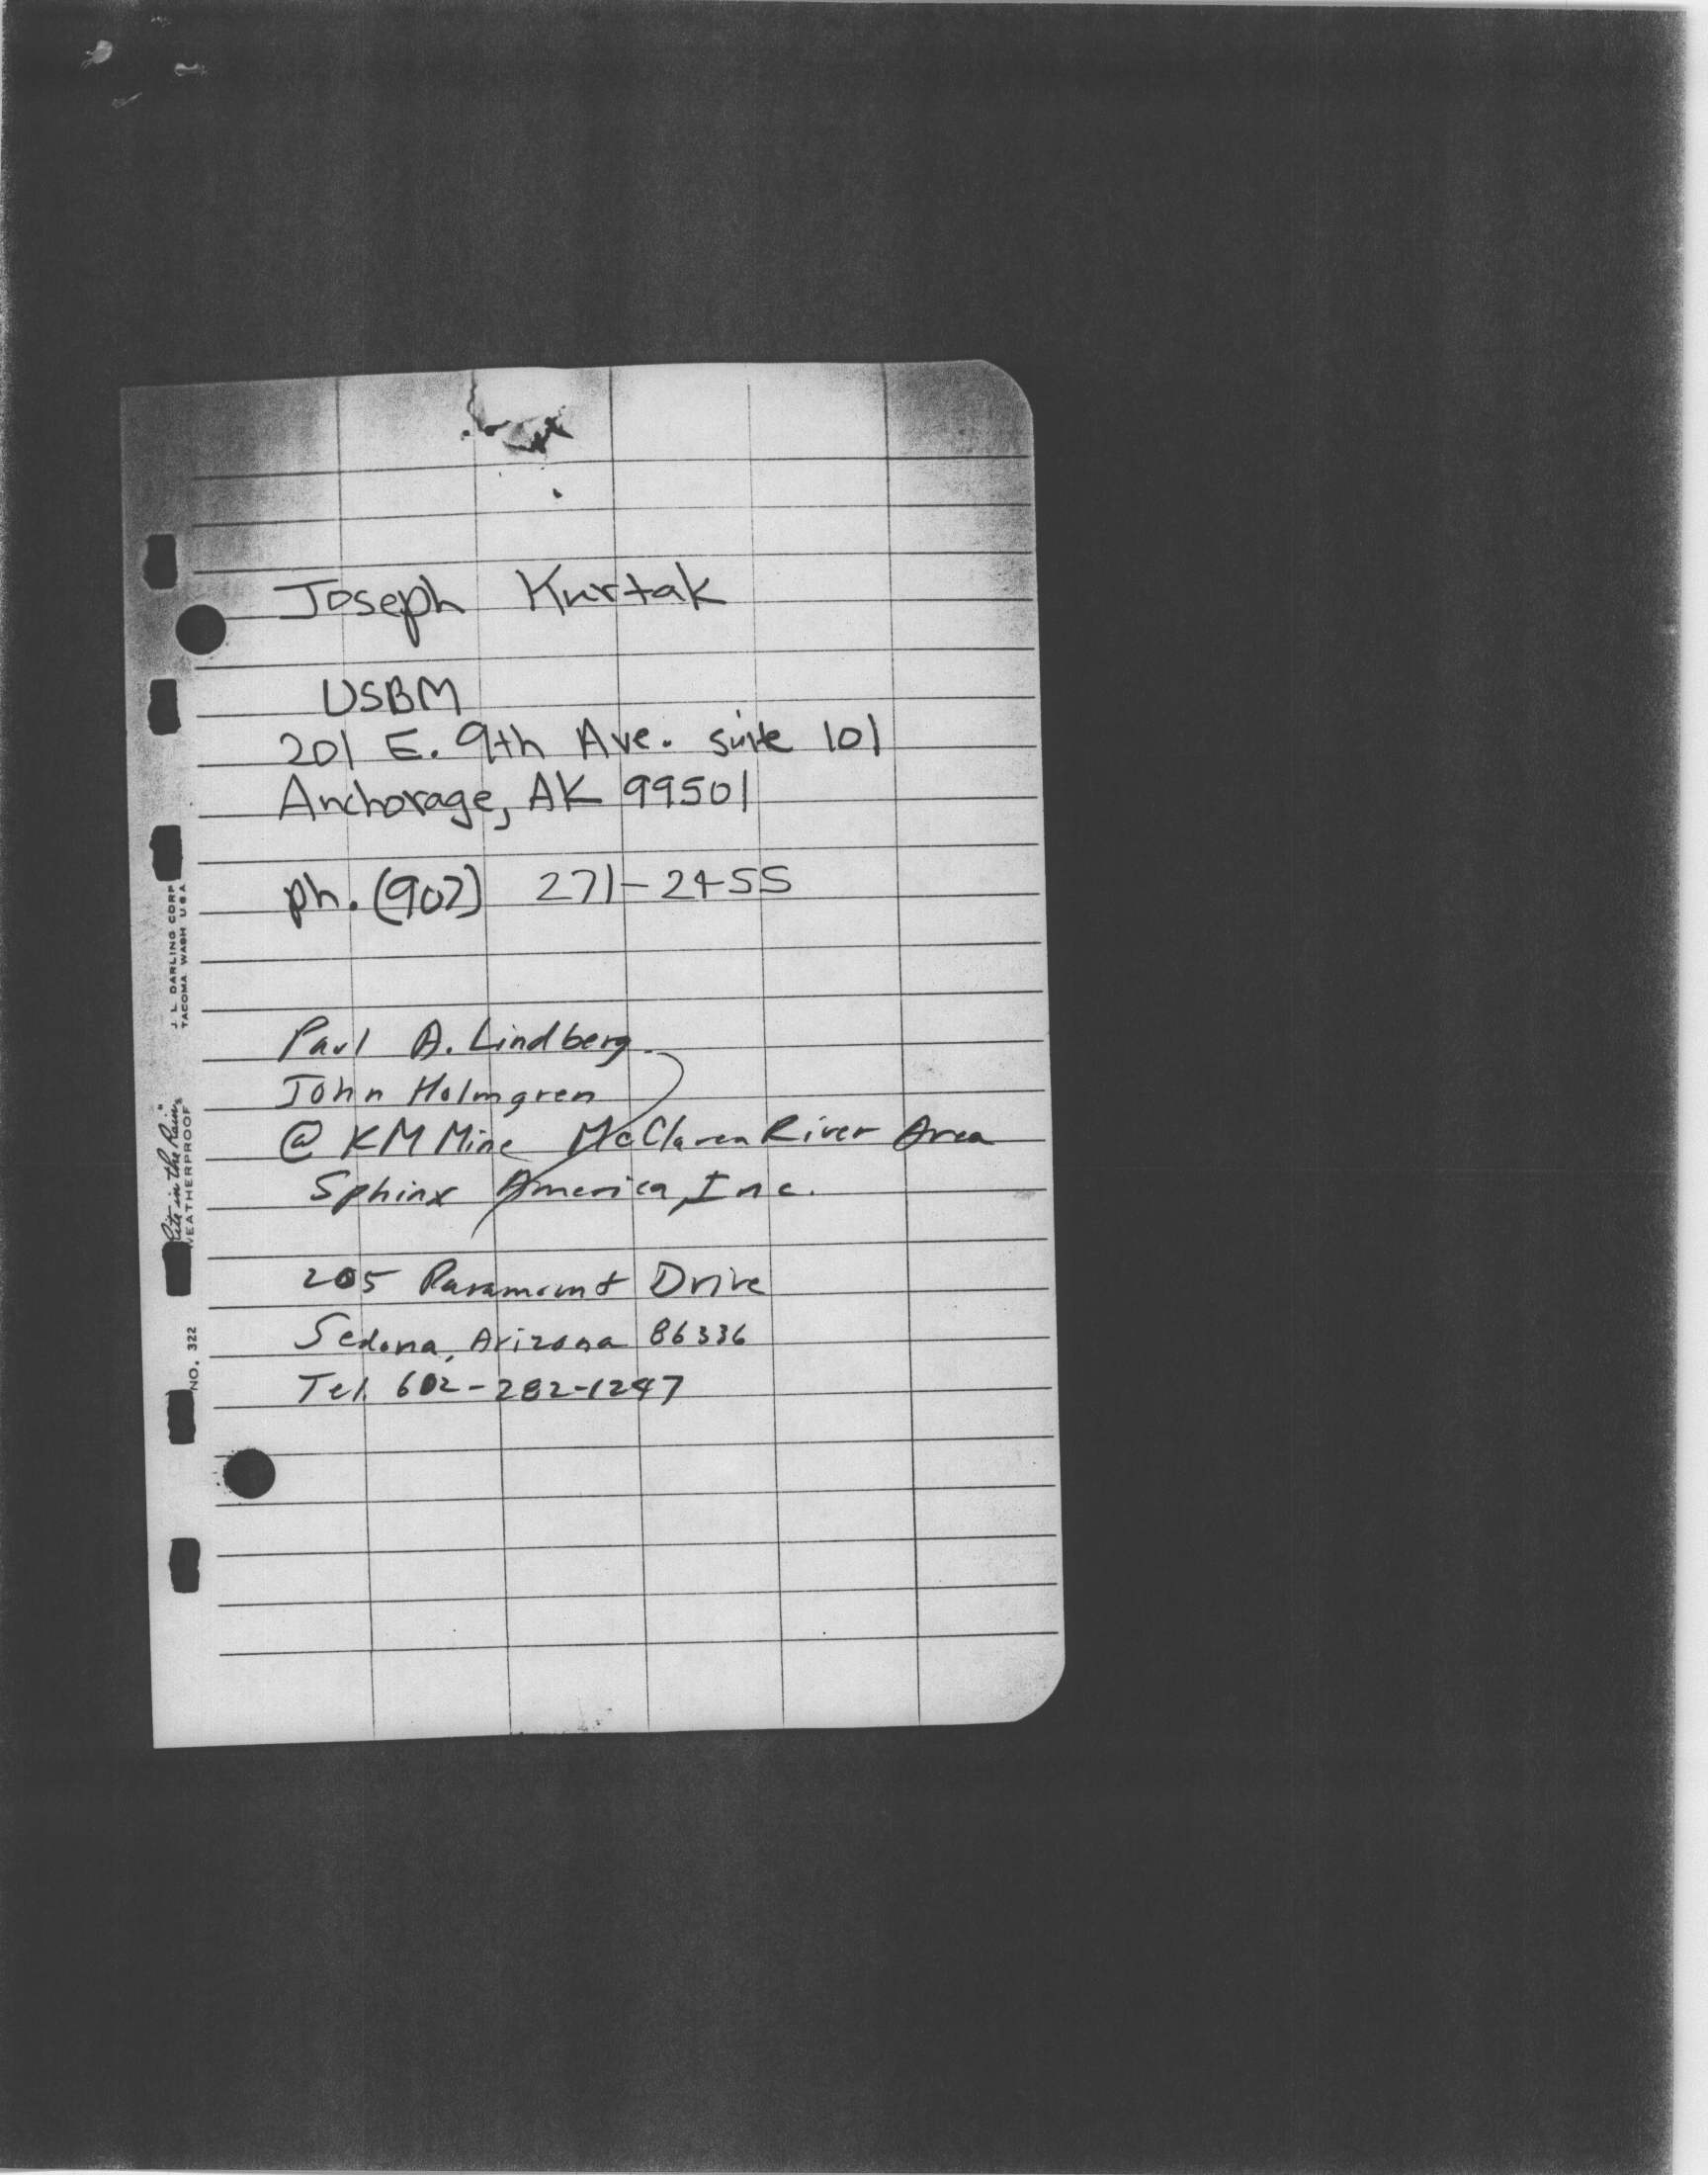 Joseph Kurtak
USBM
201 E. 9th Ave. suite 101
Anchorage, AK 99501
ph. (907) 271-2455
Paul A. Lindberg
John Holmgren
@ KM Mine McClaren River Area
Sphinx America, Inc.
205 Paramount Drive
Sedona, Arizona 86336
Tel. 602-282-1247
J. L. DARLING CORP.
TACOMA WASH USA
"Rite in the Rain"
WEATHERPROOF
NO. 322